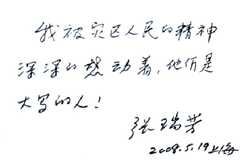 我被灾区人民的精神
深深的感动着,他们是
大写的人!
张瑞芳
2008.5.19上海